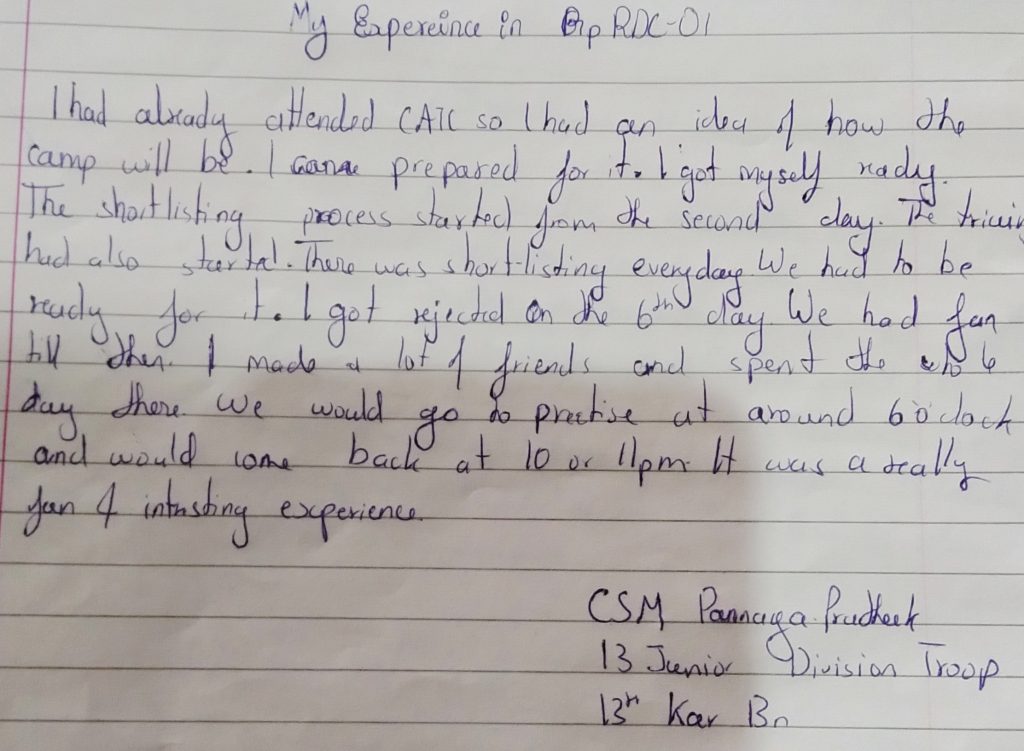 My Expereince in Grp RDC-01
I had already attended CATC so I had an idea of how the
camp will be. I came prepared for it. I got myself ready.
The shortlisting process started from the second day. The
had also started. There was short-listing everyday We had to be
ready for it. I got rejected on the 6th day We had fun
till then. I made a lot of friends and spent the
day there We would go to practise at around 6 o'clock
and would come back at 10 or 11pm It was a really
fun & intrsting experience
CSM Pannaga Prudheek
13 Junior Division Troop
13th Kar Bn